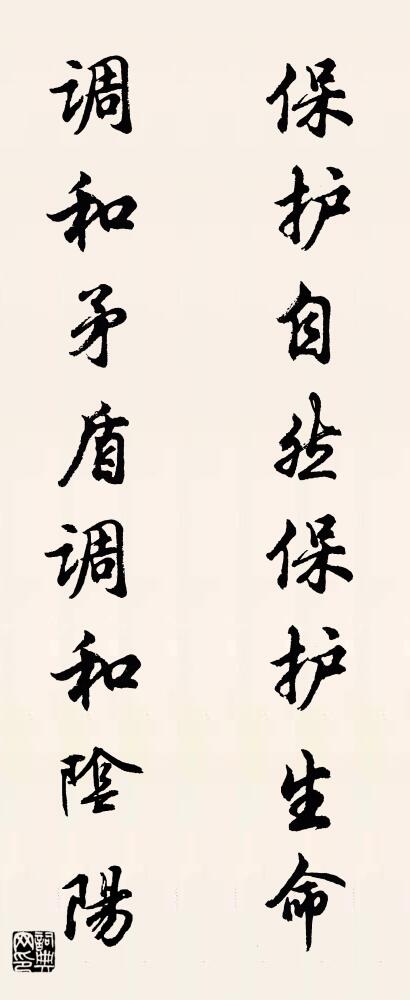 保护自然保护生命
调和矛盾调和陰陽
詞典网印